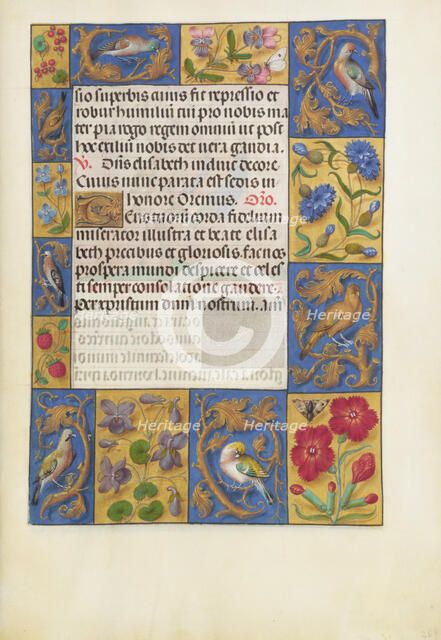 sio superbis cuius fit repressio et
robur humiliū cui pro nobis ma
ter pia regō regem omniū ut post
hoc exiliū nobis det uera gaudia.
V. Dn̄s elisabeth induit decore
Cuius nunc parata est sedis in
honore Oremus. Oro.
corda fidelium
miserator illustra et beate elisa
beth precibus et gloriosis fac nos
prospera mundi despicere et celes
ti semper consolatione gaudere.
Per xpristum dnm nostrum. am
Heritage Heritage
Heritage Heritage
Heritage Heritage